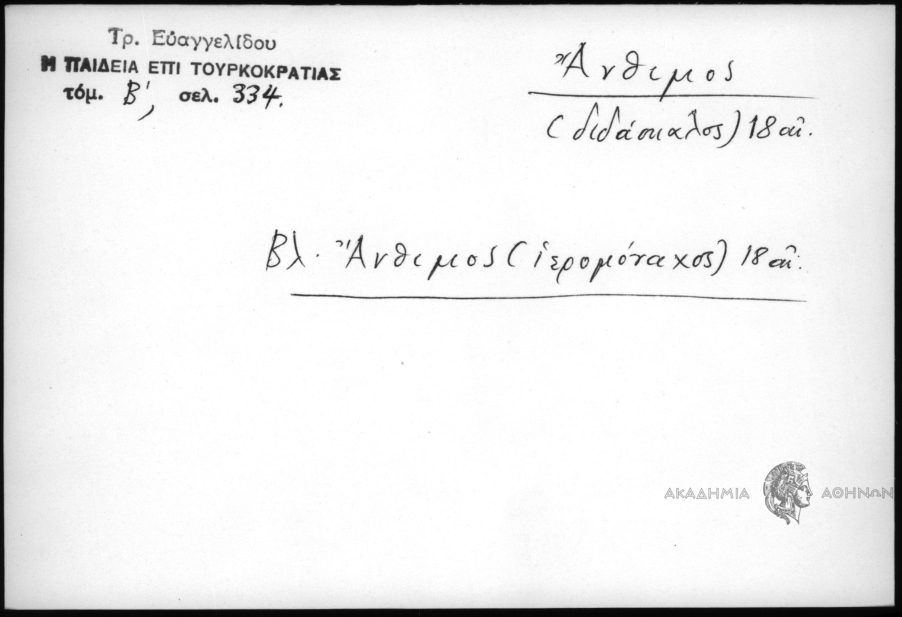 Τρ. Εὐαγγελίδου
Η ΠΑΙΔΕΙΑ ΕΠΙ ΤΟΥΡΚΟΚΡΑΤΙΑΣ
τόμ. Β', σελ. 334.
Ἄνθιμος
(διδάσκαλος) 18 αἰ.
Βλ. Ἄνθιμος (ἱερομόναχος) 18 αἰ.
ΑΚΑΔΗΜΙΑ ΑΘΗΝΩΝ